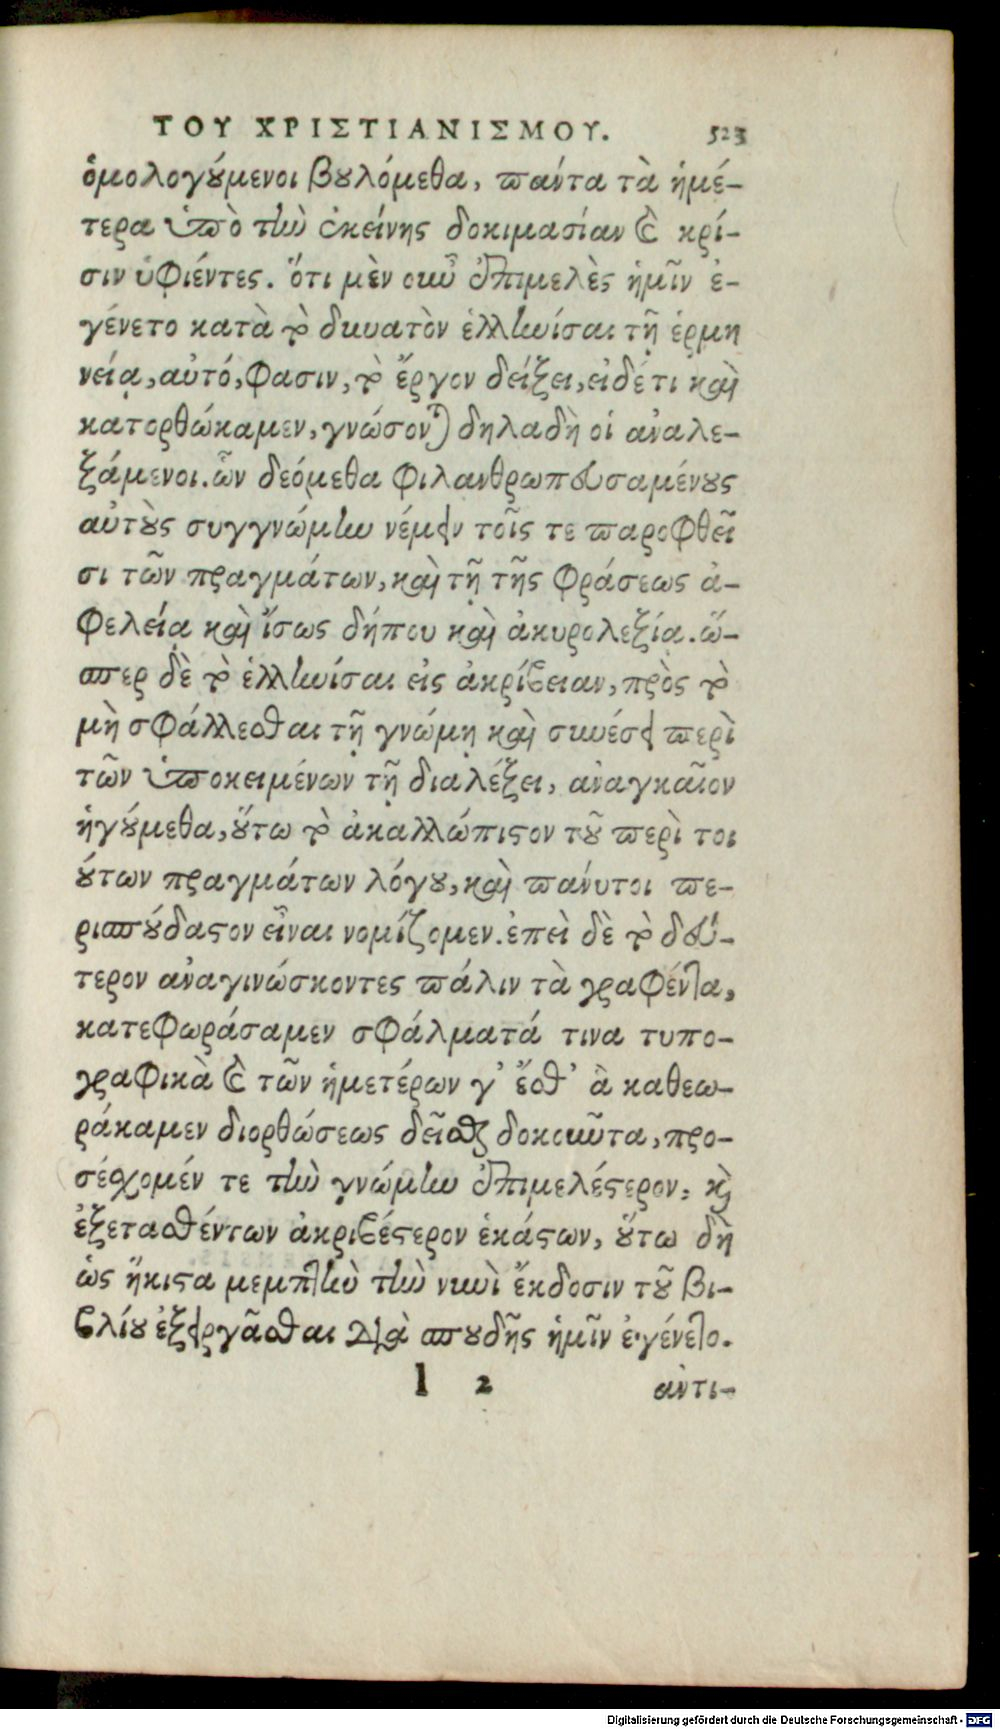 ΤΟΥ ΧΡΙΣΤΙΑΝΙΣΜΟΥ. 523
ὁμολογούμενοι βουλόμεθα, πάντα τὰ ἡμέ-
τερα ὑπὸ τὴν ἐκείνης δοκιμασίαν καὶ κρί-
σιν ὑφιέντες. ὅτι μὲν οὖν ἐπιμελὲς ἡμῖν ἐ-
γένετο κατὰ τὸ δυνατὸν ἑλληνίσαι τῇ ἑρμη
νείᾳ, αὐτό, φασιν, τὸ ἔργον δείξει, εἰ δέ τι καὶ
κατορθώκαμεν, γνώσονται δηλαδὴ οἱ ἀναλε-
ξάμενοι. ὧν δεόμεθα φιλανθρωπευσαμένους
αὐτοὺς συγγνώμην νέμειν τοῖς τε παροφθεῖ
σι τῶν πραγμάτων, καὶ τῇ τῆς φράσεως ἀ-
φελείᾳ καὶ ἴσως δήπου καὶ ἀκυρολεξίᾳ. ὥ-
σπερ δὲ τὸ ἑλληνίσαι εἰς ἀκρίβειαν, πρὸς τὸ
μὴ σφάλλεσθαι τῇ γνώμῃ καὶ συνέσει περὶ
τῶν ὑποκειμένων τῇ διαλέξει, ἀναγκαῖον
ἡγούμεθα, οὕτω τὸ ἀκαλλώπιστον τοῦ περὶ τοι
ούτων πραγμάτων λόγου, καὶ πάνυτοι πε-
ρισπούδαστον εἶναι νομίζομεν. ἐπεὶ δὲ τὸ δεύ-
τερον ἀναγινώσκοντες πάλιν τὰ γραφέντα,
κατεφωράσαμεν σφάλματά τινα τυπο-
γραφικὰ καὶ τῶν ἡμετέρων γ’ ἔσθ’ ἃ καθεω-
ράκαμεν διορθώσεως δεῖσθαι δοκοῦντα, προ-
σέσχομέν τε τὴν γνώμην ἐπιμελέστερον, καὶ
ἐξετασθέντων ἀκριβέστερον ἑκάστων, οὕτω δὴ
ὡς ἥκιστα μεμπτὴν τὴν νυνὶ ἔκδοσιν τοῦ βι-
βλίου ἐξειργᾶσθαι διὰ σπουδῆς ἡμῖν ἐγένετο.
l 2 ἀντι-
Digitalisierung gefördert durch die Deutsche Forschungsgemeinschaft - DFG